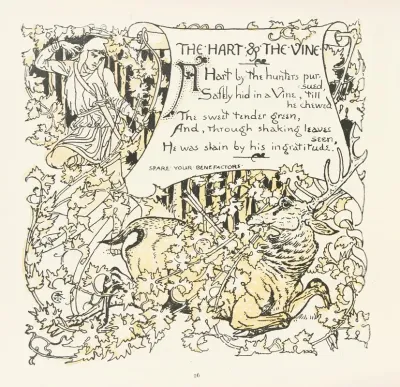 THE·HART & THE·VINE
A Hart by the hunters pur-
sued,
Safely hid in a Vine, 'till
he chewed
The sweet tender green,
And, through shaking leaves
seen,
He was slain by his ingratitude.
SPARE YOUR BENEFACTORS·
26